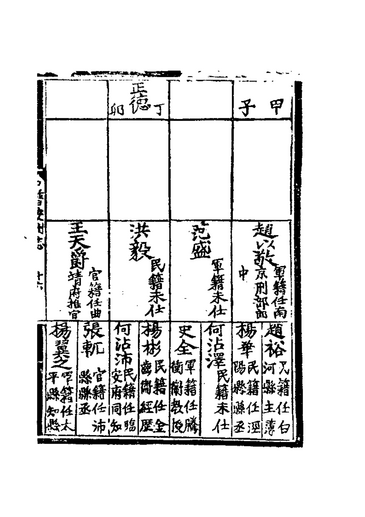 甲子
正德丁卯
趙以敬 軍籍任南京刑部郎中
范盛 軍籍未仕
洪毅 民籍未仕
王天爵 官籍任曲靖府推官
趙裕 籍任白河縣主簿
楊華 民籍任涇陽縣縣丞
何沾澤 民籍未仕
史全 軍籍任騰衝衛教授
楊彬 民籍任金齒衛經歷
何沾沛 民籍任臨安府同知
張軏 官籍任沛縣縣丞
楊翼之 軍籍任太平縣知縣